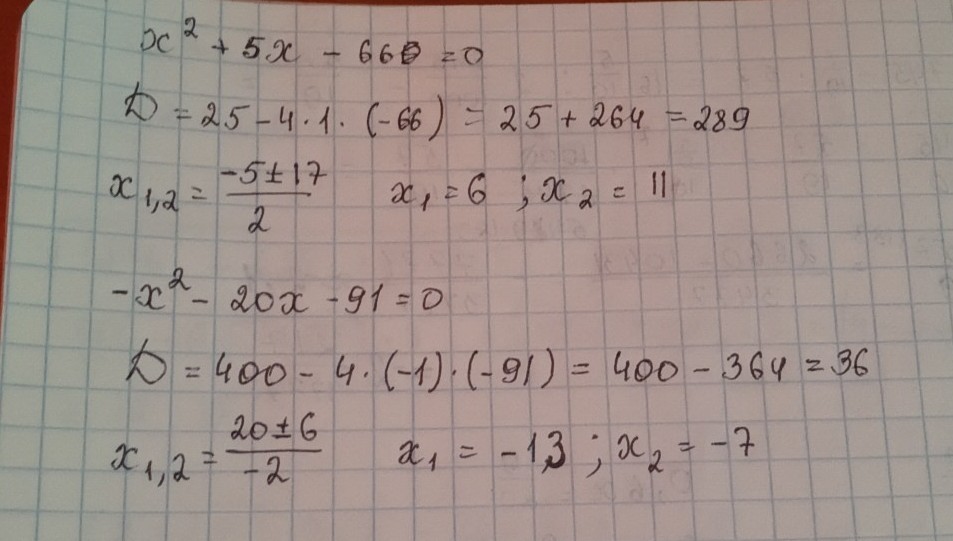 x² + 5x - 660 = 0
D = 25 - 4 · 1 · (-66) = 25 + 264 = 289
x₁,₂ = (-5 ± 17)/2 x₁ = 6 ; x₂ = 11
-x² - 20x - 91 = 0
D = 400 - 4 · (-1) · (-91) = 400 - 364 = 36
x₁,₂ = (20 ± 6)/(-2) x₁ = -13 ; x₂ = -7